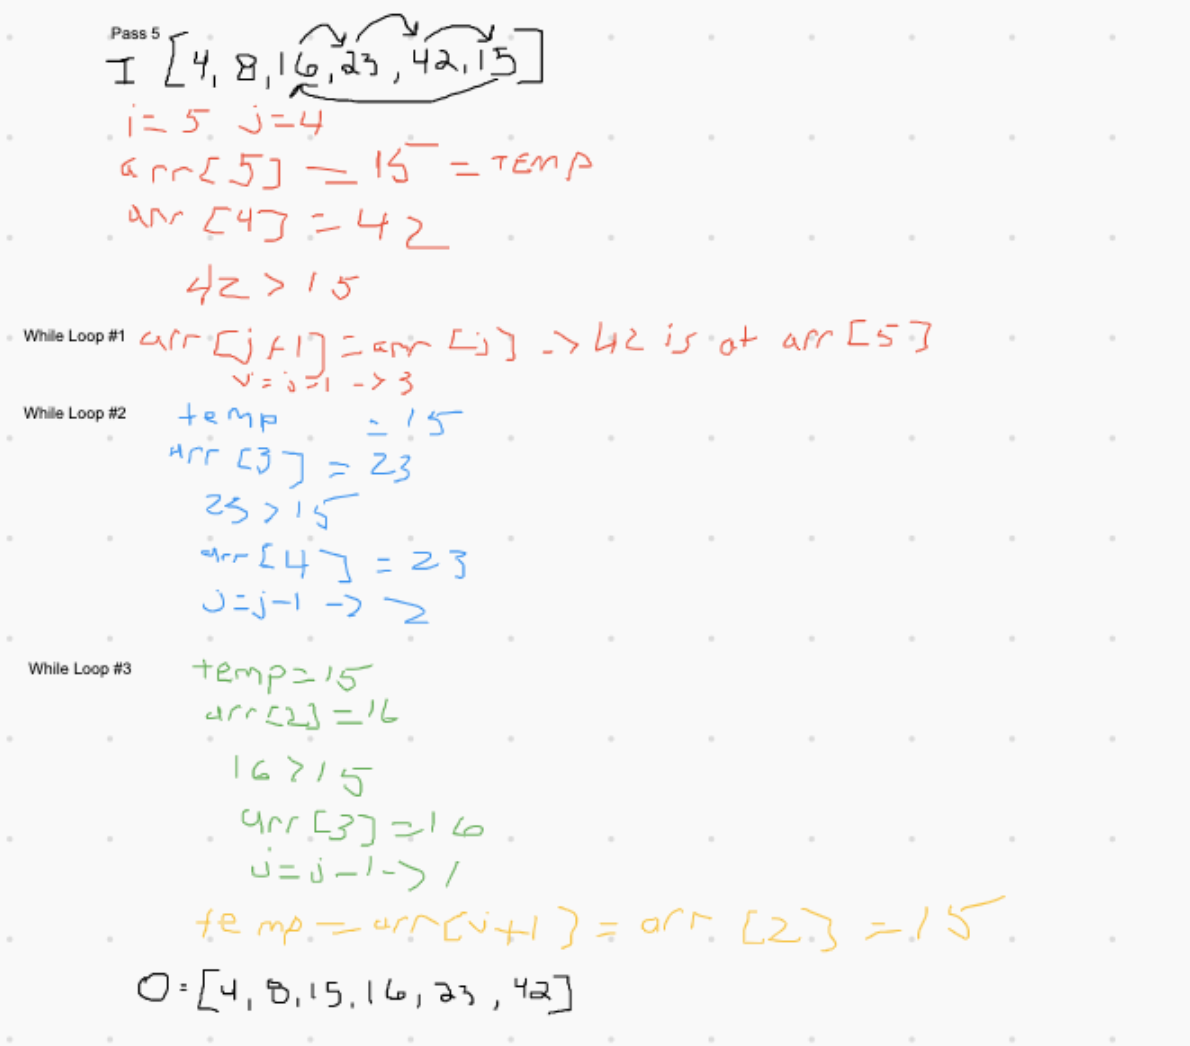 Pass 5
I [4, 8, 16, 23, 42, 15]
i = 5 j = 4
arr[5] = 15 = TEMP
arr [4] = 42
42 > 15
While Loop #1 arr[j+1] = arr [j] -> 42 is at arr [5]
j = j-1 -> 3
While Loop #2 temp = 15
arr [3] = 23
23 > 15
arr [4] = 23
j = j-1 -> 2
While Loop #3 temp = 15
arr [2] = 16
16 > 15
arr [3] = 16
j = j-1 -> 1
temp = arr[j+1] = arr [2] = 15
O = [4, 8, 15, 16, 23, 42]